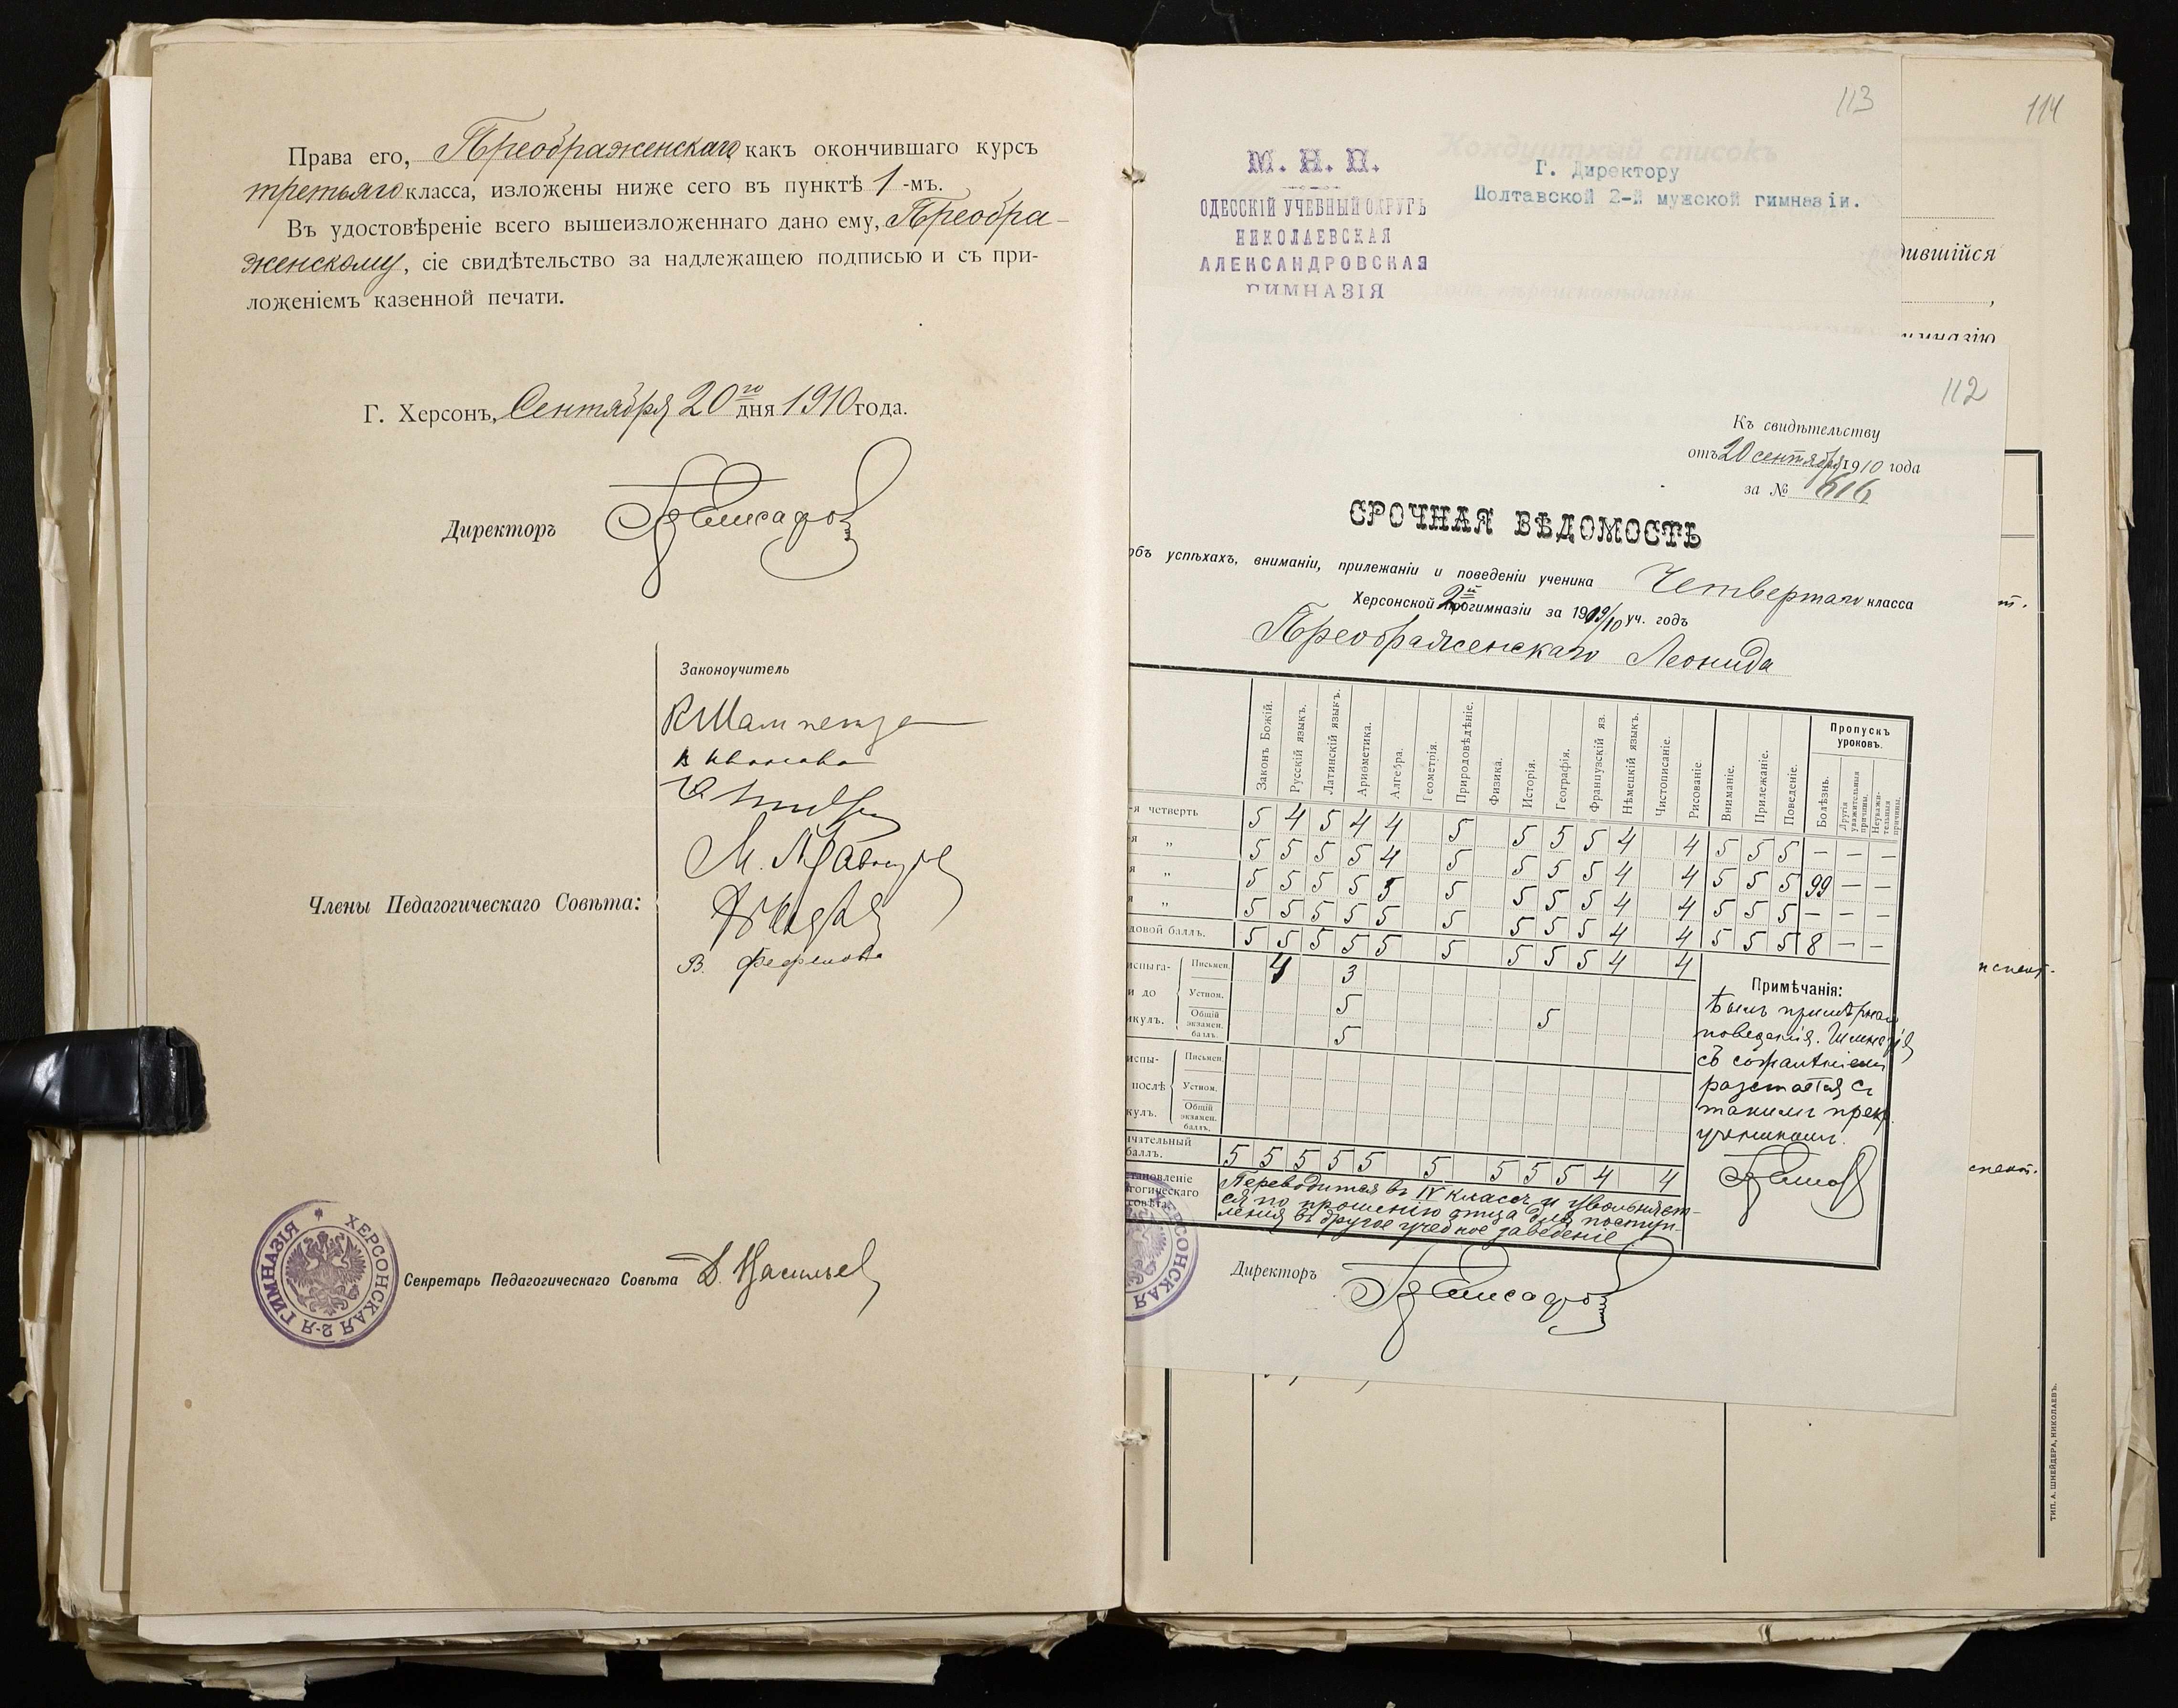 Права его, Преображенскаго какъ окончившаго курсъ
третьяго класса, изложены ниже сего въ пунктѣ 1-мъ.
Въ удостовѣреніе всего вышеизложеннаго дано ему, Преобра-
женскому, сіе свидѣтельство за надлежащею подписью и съ при-
ложеніемъ казенной печати.
Г. Херсонъ, Сентября 20го дня 1910 года.
Директоръ
Законоучитель
Члены Педагогическаго Совѣта:
Секретарь Педагогическаго Совѣта
ХЕРСОНСКАЯ 2-Я ГИМНАЗІЯ
113
114
М. Н. П.
ОДЕССКІЙ УЧЕБНЫЙ ОКРУГЪ
НИКОЛАЕВСКАЯ
АЛЕКСАНДРОВСКАЯ
ГИМНАЗІЯ
Кондуитный списокъ
Г. Директору
Полтавской 2-й мужской гимназіи.
дившійся
112
Къ свидѣтельству
отъ 20 сентября 1910 года
за № 616
СРОЧНАЯ ВѢДОМОСТЬ
объ успѣхахъ, вниманіи, прилежаніи и поведеніи ученика Четвертаго класса
Херсонской 2й прогимназіи за 1909/10 уч. годъ
Преображенскаго Леонида
Законъ Божій. Русскій языкъ. Латинскій языкъ. Ариѳметика. Алгебра. Геометрія. Природовѣдѣніе. Физика. Исторія. Географія. Французскій яз. Нѣмецкій языкъ. Чистописаніе. Рисованіе. Вниманіе. Прилежаніе. Поведеніе. Пропускъ уроковъ.
Болѣзнь. Другія уважительныя причины. Неуважительныя причины.
-я четверть 5 4 5 4 4 5 5 5 5 4 4 5 5 5 — — —
-я „ 5 5 5 5 4 5 5 5 5 4 4 5 5 5 99 — —
я „ 5 5 5 5 5 5 5 5 5 4 4 5 5 5 — — —
я „ 5 5 5 5 5 5 5 5 5 4 4 5 5 5 8 — —
довой баллъ. 5 5 5 5 5 5 5 5 5 4 4
испыта- Письмен. 4 3
и до Устном. 5
икулъ. Общій экзамен. баллъ. 5 5
испы- Письмен.
послѣ Устном.
кулъ. Общій экзамен. баллъ.
чательный баллъ. 5 5 5 5 5 5 5 5 5 4 4
Примѣчанія:
Былъ примѣрнаго
поведенія. Гимназія
съ сожалѣніемъ
разстается съ
такимъ прек.
ученикомъ.
тановленіе
гогическаго
совѣта.
Переводится въ IV классъ и увольняет-
ся по прошенію отца для поступ-
ленія въ другое учебное заведеніе
Директоръ
ТИП. А. ШНЕЙДЕРА, НИКОЛАЕВЪ.